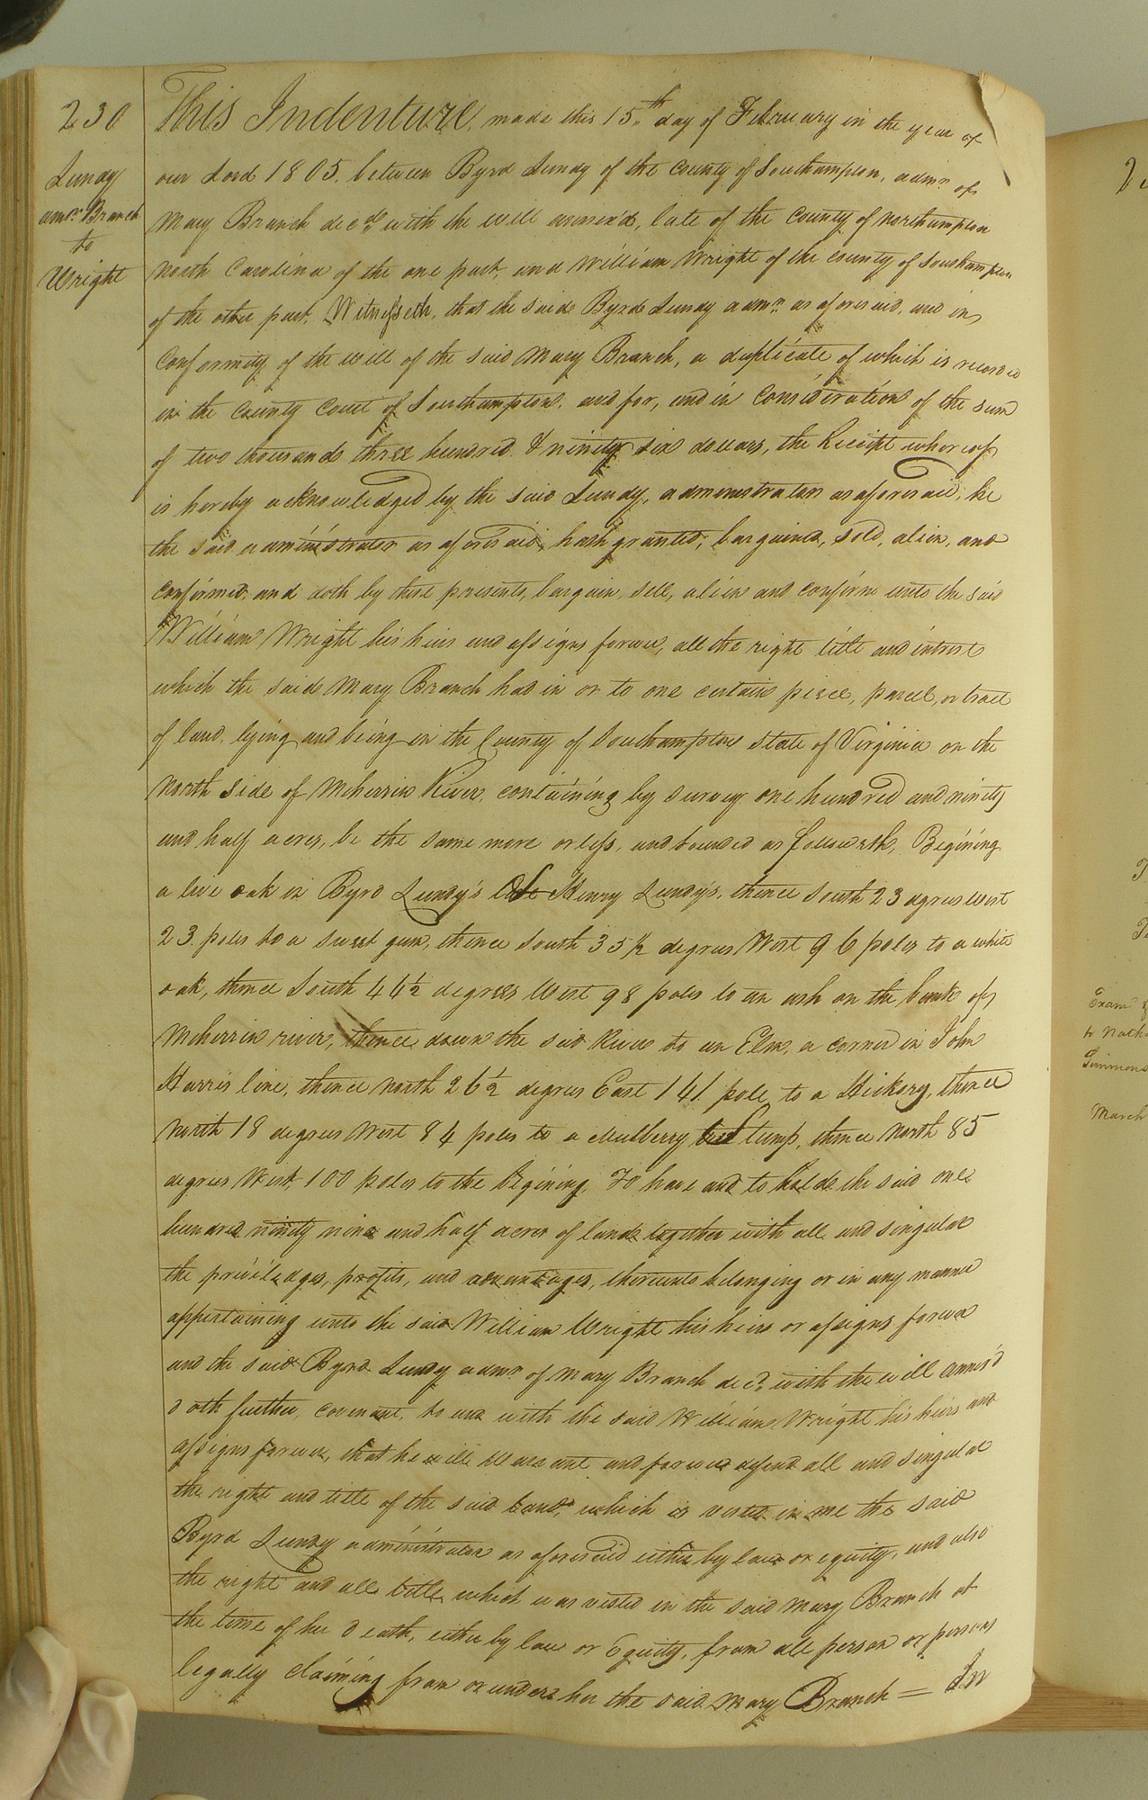 230
Lundy
admr Branch
to
Wright
This Indenture, made this 15th day of February in the year of
our Lord 1805. between Byrd Lundy of the County of Southampton, admr of
Mary Branch decd with the will annex'd, late of the County of Northampton
North Carolina of the one part, and William Wright of the County of Southampton
of the other part, Witnesseth, that the said Byrd Lundy admr. as aforesaid, and in
Conformity of the will of the said Mary Branch, a duplicate of which is recorded
in the County Court of Southampton, and for, and in Consideration of the sum
of two thousand three hundred & ninety six dollars, the Receipt whereof
is hereby acknowledged by the said Lundy, administrator as aforesaid, he
the said administrator as aforesaid, hath granted, bargained, sold, alien, and
confirmed, and doth by these presents, bargain, sell, alien and confirm unto the said
William Wright his heirs and assigns forever, all the right title and intrest
which the said Mary Branch had in or to one certain piece, parcel, or tract
of land, lying and being in the County of Southampton State of Virginia on the
North side of Meherrin River, containing by survey one hundred and ninety
and half acres, be the same more or less, and bounded as followeth, Begining
a live oak in Byrd Lundy's Henry Lundy's, thence South 23 degrees West
23 poles to a sweet gum, thence South 35½ degrees West 96 poles to a white
oak, thence South 44½ degrees West 98 poles to an ash on the bank of
Meherrin river, thence down the said River to an Elm, a corner in John
Harris line, thence North 26½ degrees East 141 pole to a Hickory, thence
North 18 degrees West 84 poles to a Mulberry Stump, thence North 85
degrees West, 100 poles to the begining, To have and to hold the said one
hundred ninety nine and half acres of land together with all and singular
the priviledges, profits, and advantages, thereunto belonging or in any manner
appertaining unto the said William Wright his heirs or assigns forever
and the said Byrd Lundy admr of Mary Branch decd. with the will annex'd
doth further, covenant, to and with the said William Wright his heirs and
assigns forever, that he will Warrant and forever defend all and singular
the right and title of the said land, which is vested in me the said
Byrd Lundy administrator as aforesaid either by law or equity, and also
the right and all title, what was vested in the said Mary Branch at
the time of her death, either by law or Equity, from all person or persons
legally claiming from or under her the said Mary Branch = In
Examd
March